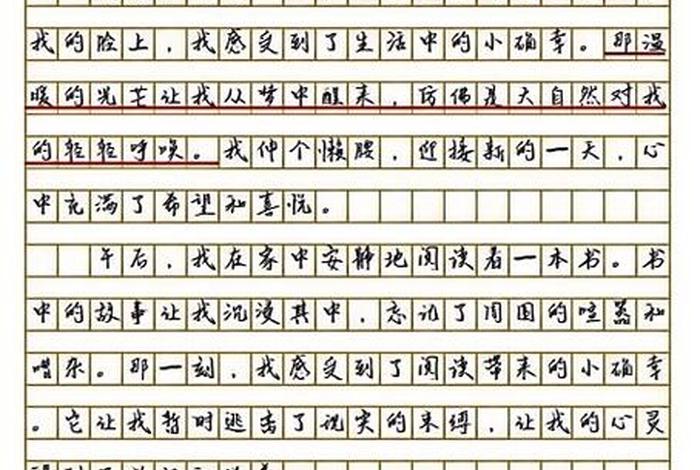 我的脸上，我感受到了生活中的小确幸。那温
暖的光芒让我从梦中醒来，仿佛是大自然对我
的轻轻呼唤。我伸个懒腰，迎接新的一天，心
中充满了希望和喜悦。
午后，我在家中安静地阅读着一本书。书
中的故事让我沉浸其中，忘记了周围的喧嚣和
嘈杂。那一刻，我感受到了阅读带来的小确幸
。它让我暂时逃离了现实的束缚，让我的心灵